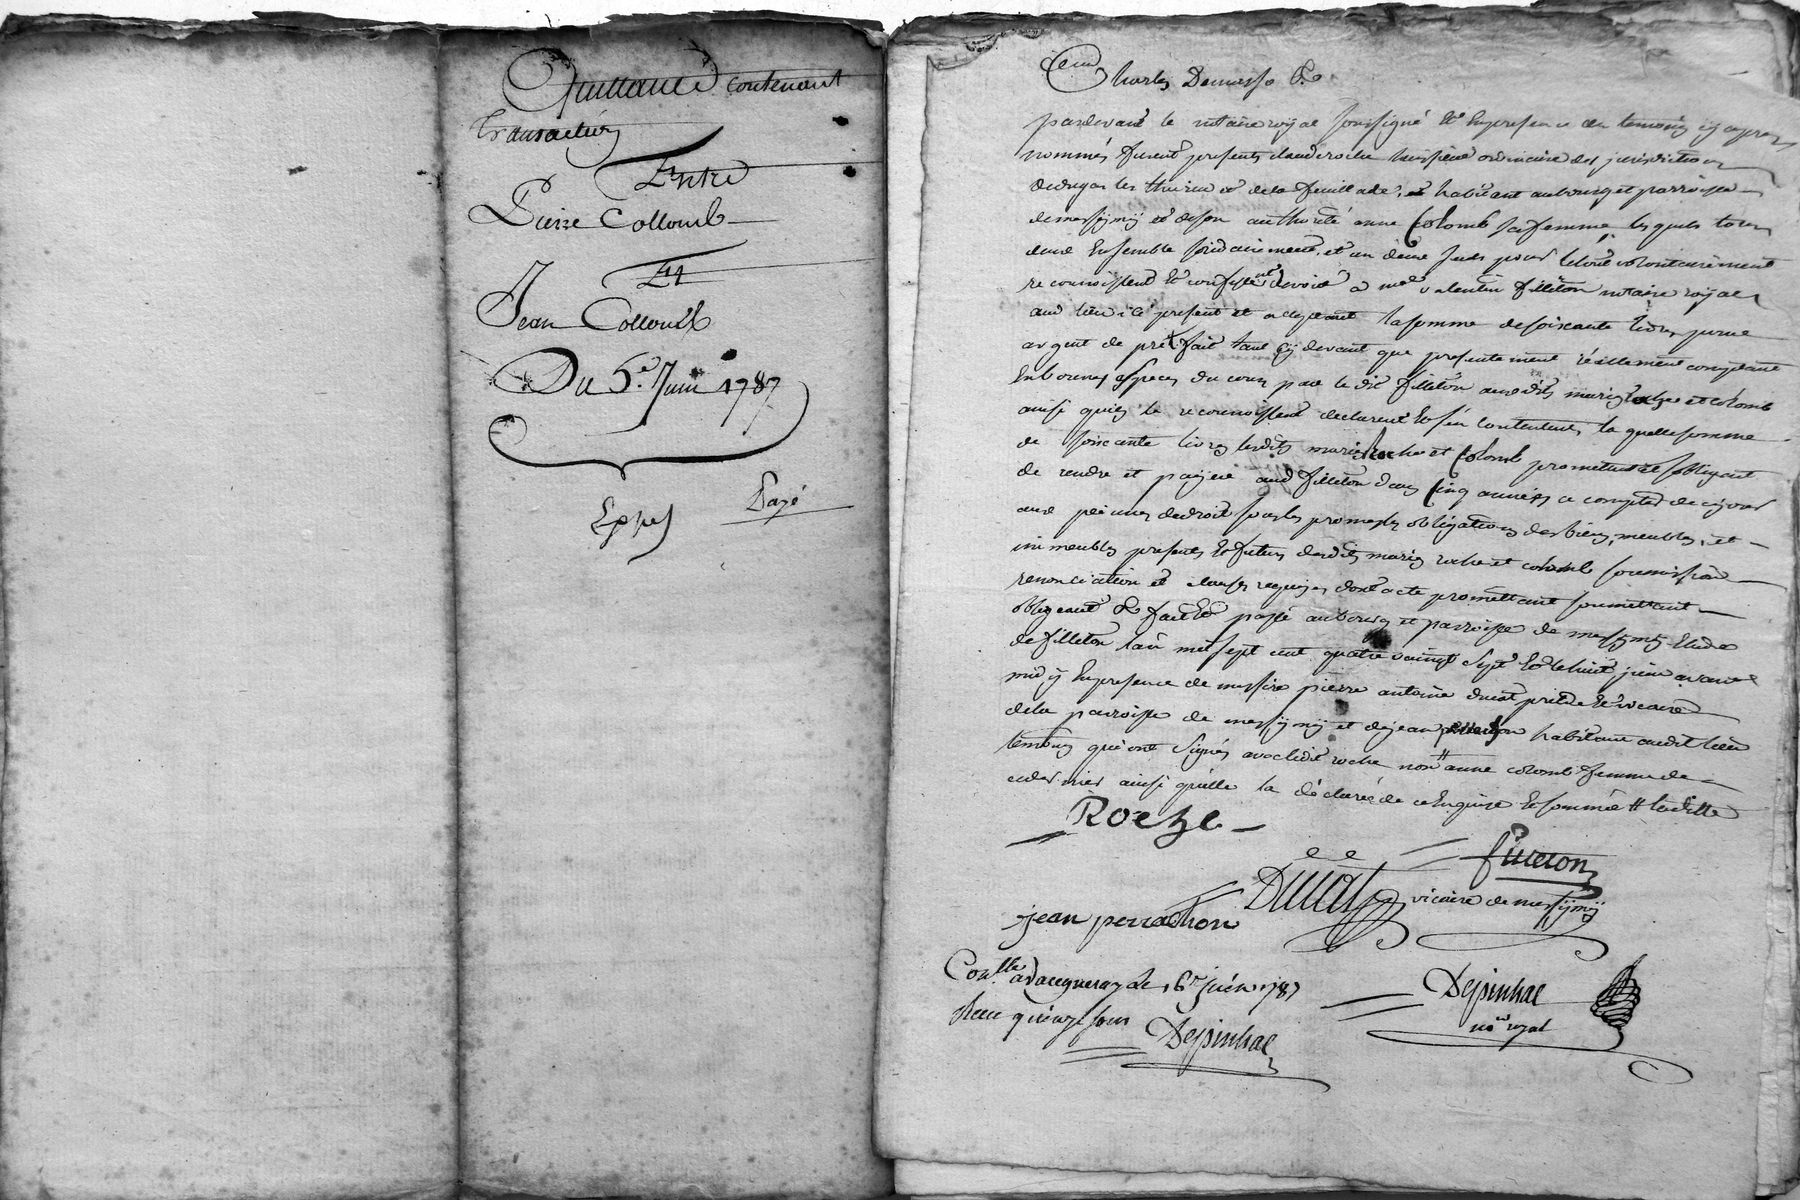 Quittance contenant
transaction
Entre
Pierre Collomb
Et
Jean Collomb
Du 5.e Juin 1787
Exped Payé
Charles
pardevant le notaire royal soussigné et en presence des temoins cy apres
nommés furent presents claude roche huissier ordinaire des jurisdictions
et de la feuillade, et habitant au bourg et parroisse
de messymy et de son authorité anne Colomb sa femme lesquels tous
deux Ensemble solidairement, et un deux seul pour le tout volontairement
reconnoissent et confessent devoir a me valentin filleton notaire royal
aud lieu ici present et acceptant la somme de soixante livres pour
argent de pret fait tant cy devant que presentement réellement comptant
En bonnes especes du cours par le dit filleton auxdits mariés roche et colomb
ainsi quils le reconnoissent declarent et sen contentent, la quelle somme
de soixante livres lesdits mariés roche et Colomb promettent et sobligent
de rendre et payer aud filleton dans Cinq années a compter de ce jour
aux peines de droit sous les promesses obligations des biens, meubles, et
immeubles presents et futurs desdits mariés roche et colomb soumission
renonciation et clauses requises dont acte promettant soumettant
obligeant & fait et passé au bourg et parroisse de messymy Etude
de filleton lan mil sept cent quatre vaingt sept et le huit juin avant
midy En presence de messire pierre antoine ducat pretre et vicaire
de la parroisse de messymy et de jean perrachon habitant audit lieu
temoins qui ont signés avec ledit roche non # anne colomb femme de
ce dernier ainsi quelle la déclaré de ce Enquise et sommée # laditte
Roche
filleton
Ducat vicaire de messymy
jean perrachon
Conlle a vaugneray le 16e juin 1787
Recu quinze sous Despinhac
Despinhac
nore royal